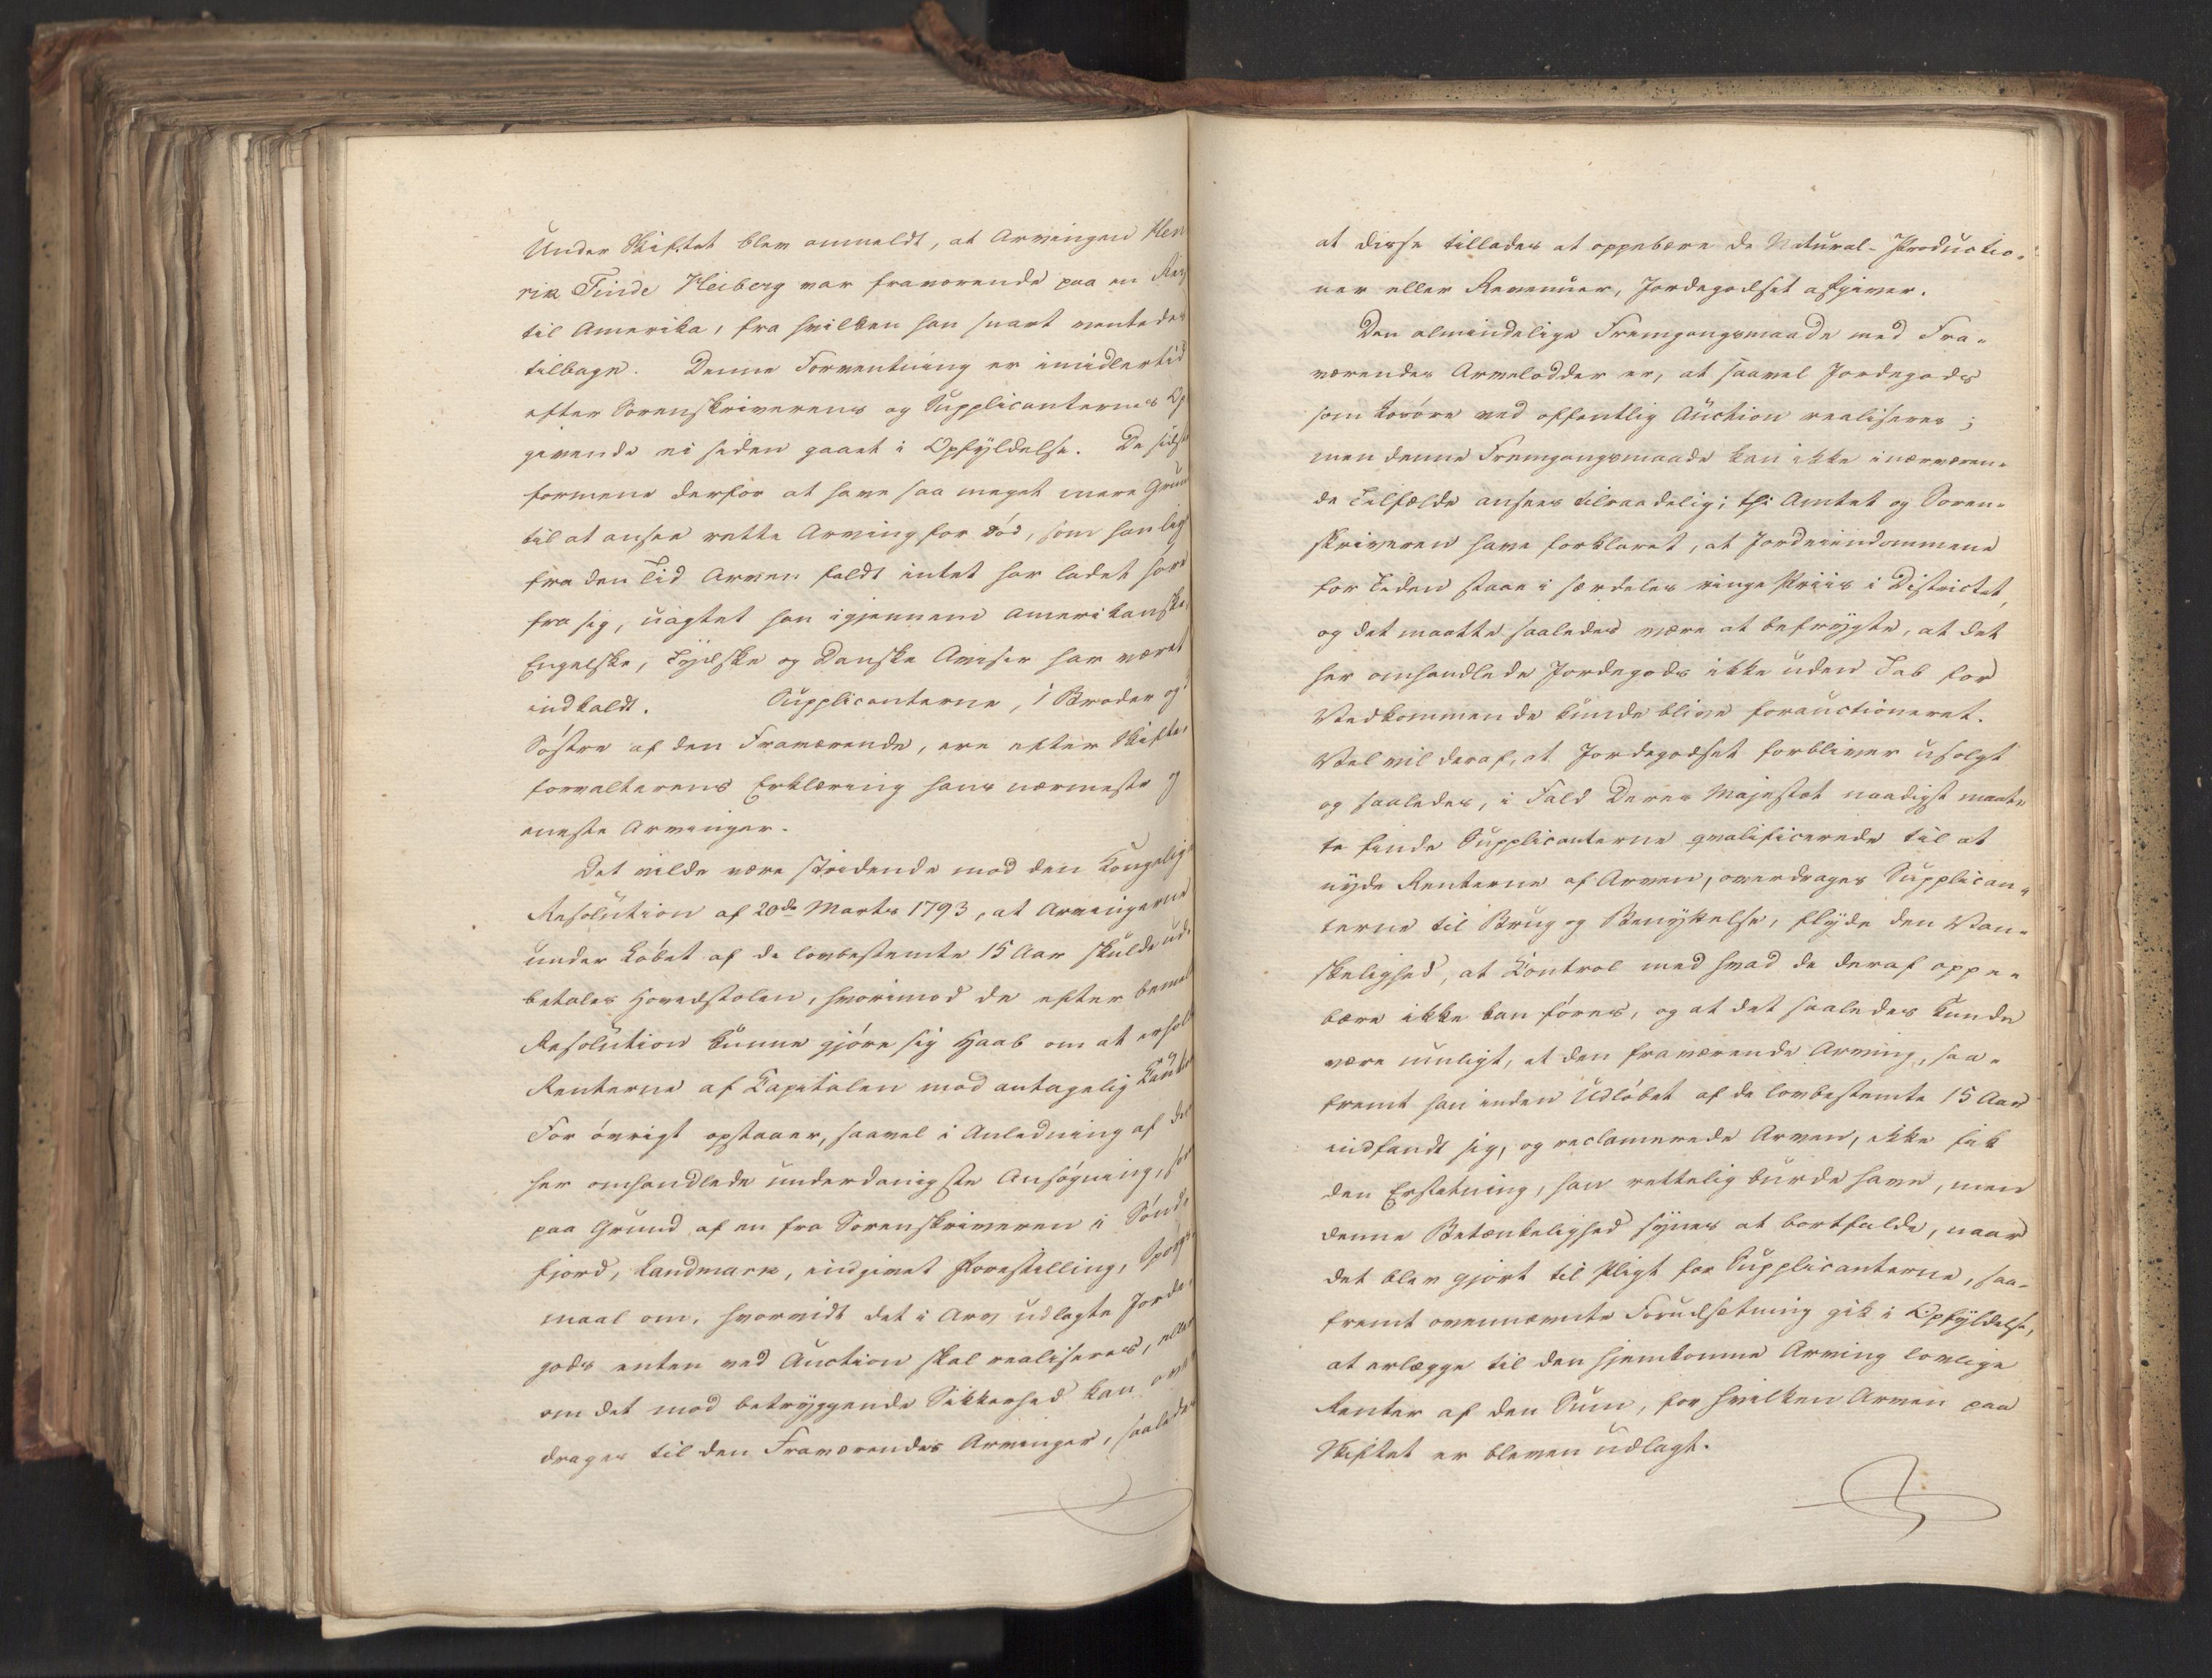 Under Skiftet blev anmeldt, at Arvingen Hen
rik Finde Heiberg var fraværende paa en
til Amerika, fra hvilken han snart ventedes
tilbage. Denne Forventning er imidlertid
efter Sorenskriverens og Supplicanternes Op
givende ei siden gaaet i Opfyldelse. De sidst
formene derfor at have saa meget mere Grund
til at ansee rette Arving for død, som han lige
fra den Tid Arven faldt intet har ladet høre
fra sig, uagtet han igjennem Amerikanske,
Engelske, Tydske og Danske Aviser har været
indkaldt. Supplicanterne, 1 Broder og
Søstre af den Fraværende, ere efter Skifte-
forvalterens Erklæring hans nærmeste og
eneste Arvinger.
Det vilde være stridende mod den Kongelige
Resolution af 20de Marts 1793, at Arvingerne
under Løbet af de lovbestemte 15 Aar skulde ud-
betales Hovedstolen, hvorimod de efter bemel
Resolution kunne gjøre sig Haab om at erhol
Renterne af Kapitalen mod antagelig Caution
For øvrigt opstaaer, saavel i Anledning af den
her omhandlede underdanigste Ansøgning, som
paa Grund af en fra Sorenskriveren i Sønd-
fjord, Landmark, indgivet Forestilling, Spørgs-
maal om, hvorvidt det i Arv udlagte Jorde-
gods enten ved Auction skal realiseres, eller
om det mod betryggende Sikkerhed kan over
drages til den Fraværendes Arvinger, saaledes
at disse tillades at oppebære de Natural-Productio-
ner eller Revenuer, Jordegodset afgiver.
Den almindelige Fremgangsmaade med Fra-
værendes Arvelodder er, at saavel Jordegods
som Løsøre ved offentlig Auction realiseres;
men denne Fremgangsmaade kan ikke i nærværen-
de Tilfælde ansees tilraadelig; thi Amtet og Soren-
skriveren have forklaret, at Jordeiendommene
for Tiden staae i særdeles ringe Priis i Districtet,
og det maatte saaledes være at befrygte, at det
her omhandlede Jordegods ikke uden Tab for
Vedkommende kunde blive forauctioneret.
Vel vil deraf, at Jordegodset forbliver usolgt
og saaledes, i Fald Deres Majestæt naadigst maat-
te finde Supplicanterne qvalificerede til at
nyde Renterne af Arven, overdrages Supplican-
terne til Brug og Benyttelse, flyde den Van-
skelighed, at Kontrol med hvad de deraf oppe-
bære ikke kan føres, og at det saaledes kunde
være muligt, at den fraværende Arving, saa-
fremt han inden Udløbet af de lovbestemte 15 Aar
indfandt sig, og reclamerede Arven, ikke fik
den Erstatning, han rettelig burde have, men
denne Betænkelighed synes at bortfalde, naar
det blev gjort til Pligt for Supplicanterne, saa-
fremt ovennævnte Forudsætning gik i Opfyldelse,
at erlægge til den hjemkomne Arving lovlige
Renter af den Sum, for hvilken Arven paa
Skiftet er bleven udlagt.